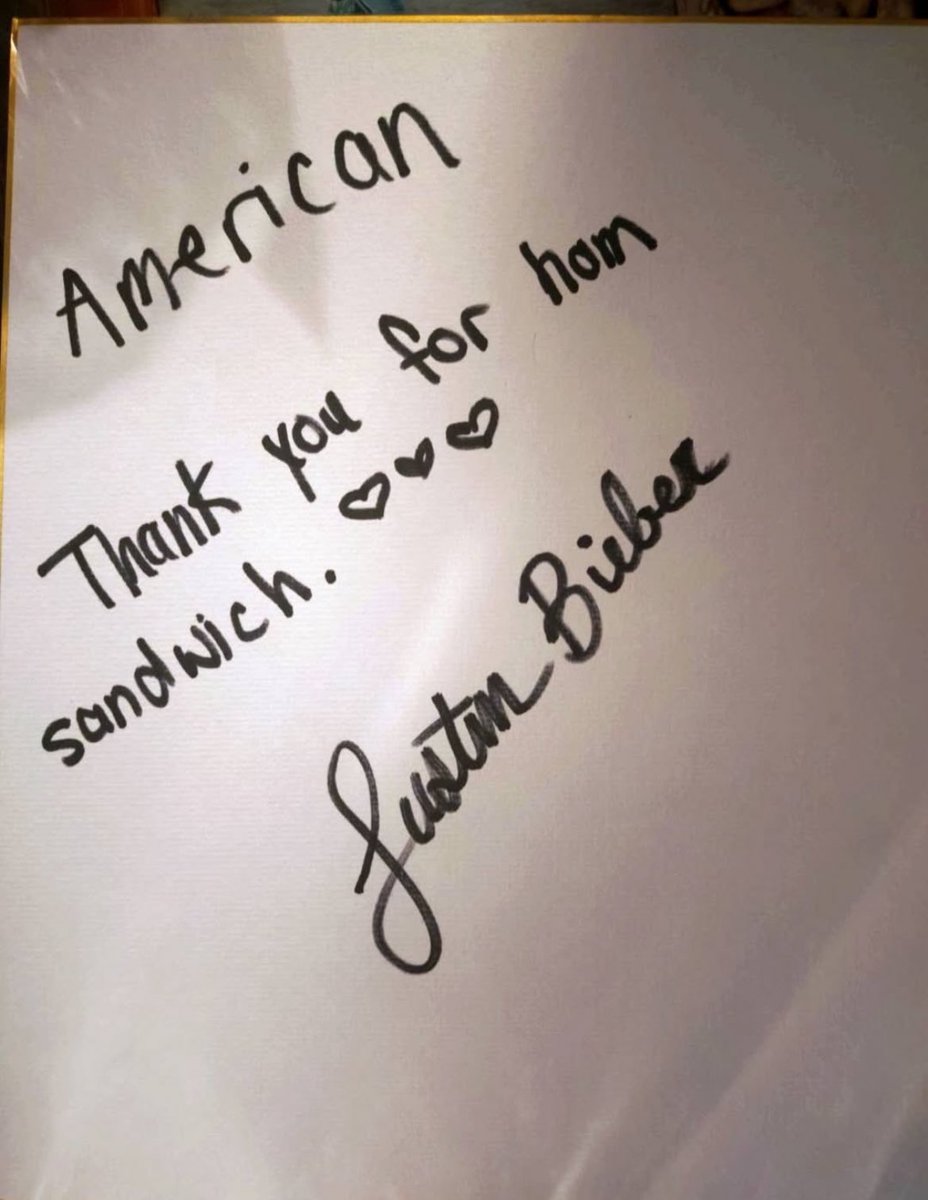 American
Thank you for ham
sandwich. ♡♥♡
Justin Bieber